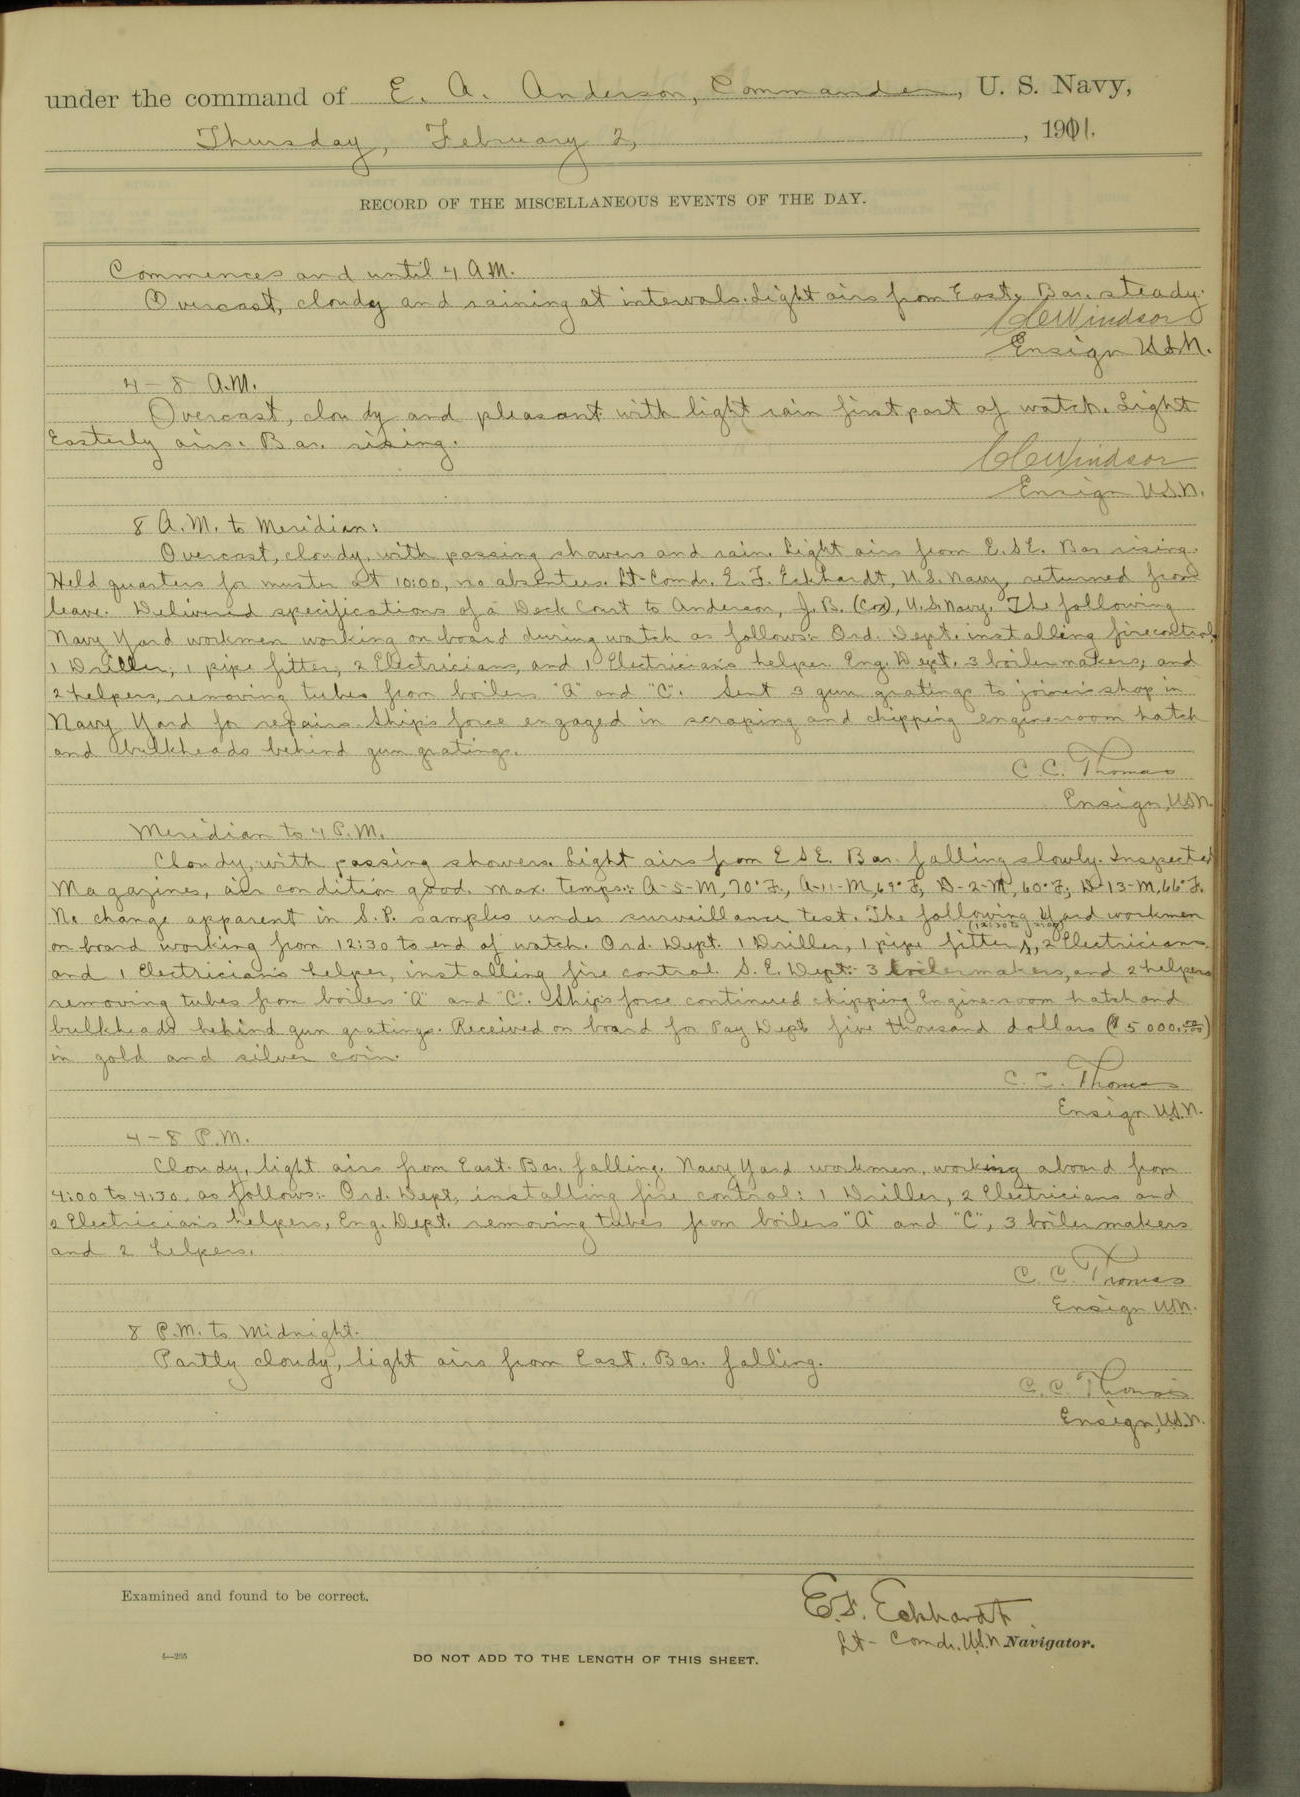 under the command of E. A. Anderson, Commander, U. S. Navy,
Thursday, February 2, 1911.
RECORD OF THE MISCELLANEOUS EVENTS OF THE DAY.
Commences and until 4 A.M.
Overcast, cloudy and raining at intervals. Light airs from East, Bar. steady.
Windsor
Ensign U.S.N.
4 - 8 A.M.
Overcast, cloudy and pleasant with light rain first part of watch. Light
Easterly airs. Bar. rising.
Windsor
Ensign U.S.N.
8 A.M. to Meridian:
Overcast, cloudy, with passing showers and rain. Light airs from E.S.E. Bar rising.
Held quarters for muster at 10:00, no absentees. Lt-Comdr. E. F. Eckhardt, U.S. Navy, returned from
leave. Delivered specifications of a Deck Court to Anderson, J. B. (Cox), U.S. Navy. The following
Navy Yard workmen working on board during watch as follows:- Ord. Dept. installing firecontrol,
1 Driller, 1 pipe fitter, 2 Electricians, and 1 Electrician's helper. Eng. Dept. 3 boilermakers, and
2 helpers, removing tubes from boilers "A" and "C". Sent 3 gun gratings to joiner's shop in
Navy Yard for repairs. Ship's force engaged in scraping and chipping engine-room hatch
and bulkheads behind gun gratings.
C. C. Thomas
Ensign, U.S.N.
Meridian to 4 P.M.
Cloudy, with passing showers. Light airs from E S E. Bar. falling slowly. Inspected
Magazines, air condition good. Max. temps:- A-5-M, 70° F., A-11-M, 69° F, D-2-M, 60° F; D-13-M, 66° F.
No change apparent in S.P. samples under surveillance test. The following Yard workmen
on board working from 12:30 to end of watch. Ord. Dept. 1 Driller, 1 pipe fitter, 2 Electricians
and 1 Electrician's helper, installing fire control. S. E. Dept:- 3 boilermakers, and 2 helpers
removing tubes from boilers "A" and "C". Ship's force continued chipping Engine-room hatch and
bulkheads behind gun gratings. Received on board for Pay Dept five thousand dollars ($5000.00)
in gold and silver coin.
C. C. Thomas
Ensign U.S.N.
4 - 8 P.M.
Cloudy, light airs from East. Bar. falling. Navy Yard workmen, working aboard from
4:00 to 4:30, as follows:- Ord. Dept, installing fire control: 1 Driller, 2 Electricians and
2 Electrician's helpers, Eng. Dept. removing tubes from boilers "A" and "C", 3 boilermakers
and 2 helpers.
C. C. Thomas
Ensign USN.
8 P.M. to Midnight.
Partly cloudy, light airs from East. Bar. falling.
C. C. Thomas
Ensign, U.S.N.
Examined and found to be correct.
E. F. Eckhardt
Lt- Comdr. U.S.N Navigator.
DO NOT ADD TO THE LENGTH OF THIS SHEET.